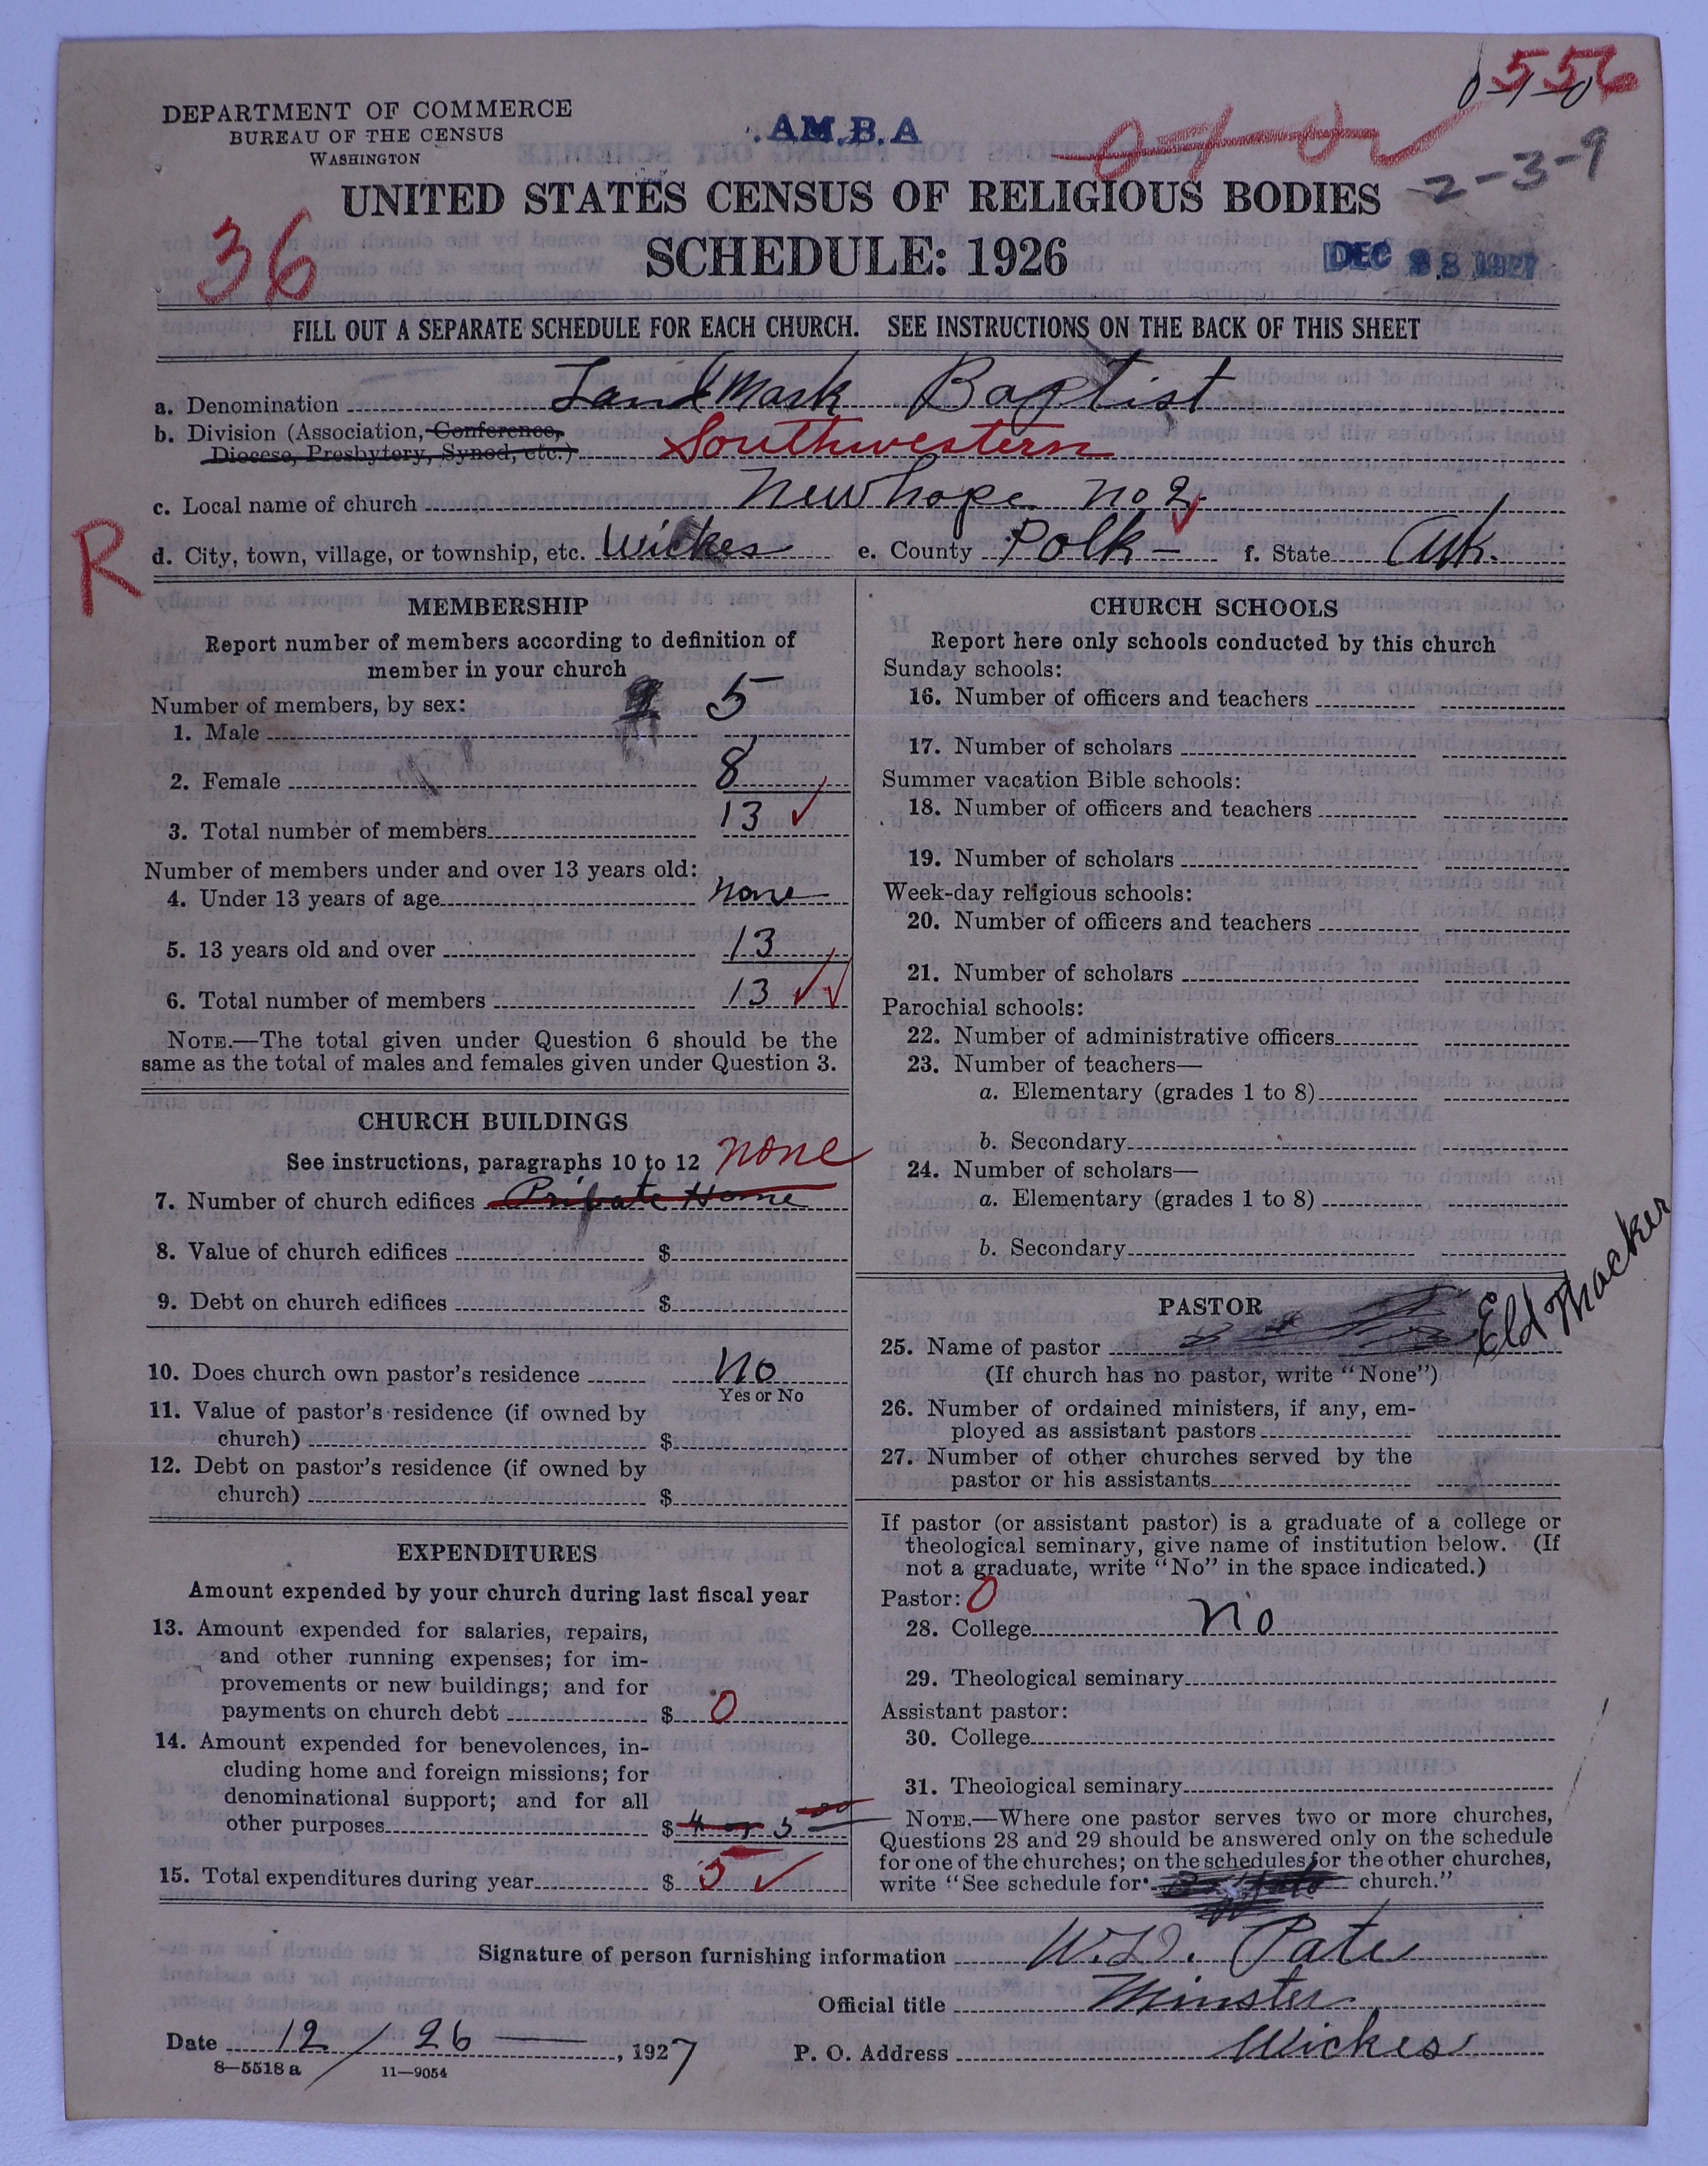 556
0-1-0
DEPARTMENT OF COMMERCE
BUREAU OF THE CENSUS
WASHINGTON
A.M.B.A
2-3-9
UNITED STATES CENSUS OF RELIGIOUS BODIES
36
SCHEDULE: 1926
DEC 28 1927
FILL OUT A SEPARATE SCHEDULE FOR EACH CHURCH. SEE INSTRUCTIONS ON THE BACK OF THIS SHEET
a. Denomination LandMark Baptist
b. Division (Association, Conference,
Diocese, Presbytery, Synod, etc.) Southwestern
c. Local name of church New hope no 2.
R
d. City, town, village, or township, etc. Wickes e. County Polk - f. State Ark.
MEMBERSHIP
Report number of members according to definition of
member in your church
Number of members, by sex:
1. Male 5
2. Female 8
3. Total number of members 13 ✓
Number of members under and over 13 years old:
4. Under 13 years of age none
5. 13 years old and over 13
6. Total number of members 13 ✓✓
NOTE.—The total given under Question 6 should be the
same as the total of males and females given under Question 3.
CHURCH BUILDINGS
See instructions, paragraphs 10 to 12 none
7. Number of church edifices Private Home
8. Value of church edifices $
9. Debt on church edifices $
10. Does church own pastor's residence No
Yes or No
11. Value of pastor's residence (if owned by
church) $
12. Debt on pastor's residence (if owned by
church) $
EXPENDITURES
Amount expended by your church during last fiscal year
13. Amount expended for salaries, repairs,
and other running expenses; for im-
provements or new buildings; and for
payments on church debt $ 0
14. Amount expended for benevolences, in-
cluding home and foreign missions; for
denominational support; and for all
other purposes $ 4 or 5 00
15. Total expenditures during year $ 5 ✓
CHURCH SCHOOLS
Report here only schools conducted by this church
Sunday schools:
16. Number of officers and teachers
17. Number of scholars
Summer vacation Bible schools:
18. Number of officers and teachers
19. Number of scholars
Week-day religious schools:
20. Number of officers and teachers
21. Number of scholars
Parochial schools:
22. Number of administrative officers
23. Number of teachers—
a. Elementary (grades 1 to 8)
b. Secondary
24. Number of scholars—
a. Elementary (grades 1 to 8)
b. Secondary
PASTOR
25. Name of pastor Eld Thacker
(If church has no pastor, write "None")
26. Number of ordained ministers, if any, em-
ployed as assistant pastors
27. Number of other churches served by the
pastor or his assistants
If pastor (or assistant pastor) is a graduate of a college or
theological seminary, give name of institution below. (If
not a graduate, write "No" in the space indicated.)
Pastor: 0
28. College no
29. Theological seminary
Assistant pastor:
30. College
31. Theological seminary
NOTE.—Where one pastor serves two or more churches,
Questions 28 and 29 should be answered only on the schedule
for one of the churches; on the schedules for the other churches,
write "See schedule for church."
Signature of person furnishing information W.D. Pate
Official title Minster
Date 12 / 26 , 1927 P. O. Address Wickes
8—5518 a 11—9054